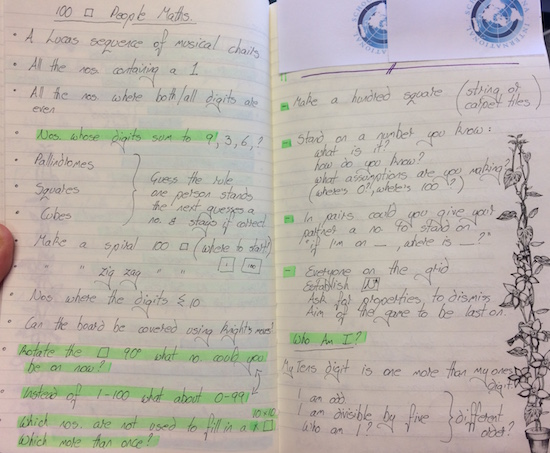 100 □ People Maths.
• A Lucas sequence of musical chairs
• All the nos. containing a 1
• All the nos. where both/all digits are
even
• Nos. whose digits sum to 9, 3, 6, ?
• Pallindromes
• Squares
• Cubes
Guess the rule
one person stands
the next guesses a
no. & stays if correct
• Make a spiral 100 □ (where to start?)
• " zig zag " "
• Nos. where the digits ≤ 10
• Can the board be covered using Knights moves?
• Rotate the □ 90° what no. could you
be on now?
• Instead of 1-100 what about 0-99?
10×10
• Which nos. are not used to fill in a □
Which more than once?
INTERNATIONAL
- Make a hundred square (string or
carpet tiles)
- Stand on a number you know:
what is it?
how do you know?
what assumptions are you making?
(where's 0?, where's 100?)
- In pairs could you give your
partner a no. to stand on.
"if I'm on __, where is __?"
- Everyone on the grid
Establish
Ask for properties, to dismiss
Aim of the game to be last on.
Who Am I?
My tens digit is one more than my ones
digit
I am odd
I am divisible by five
Who am I?
different
order?